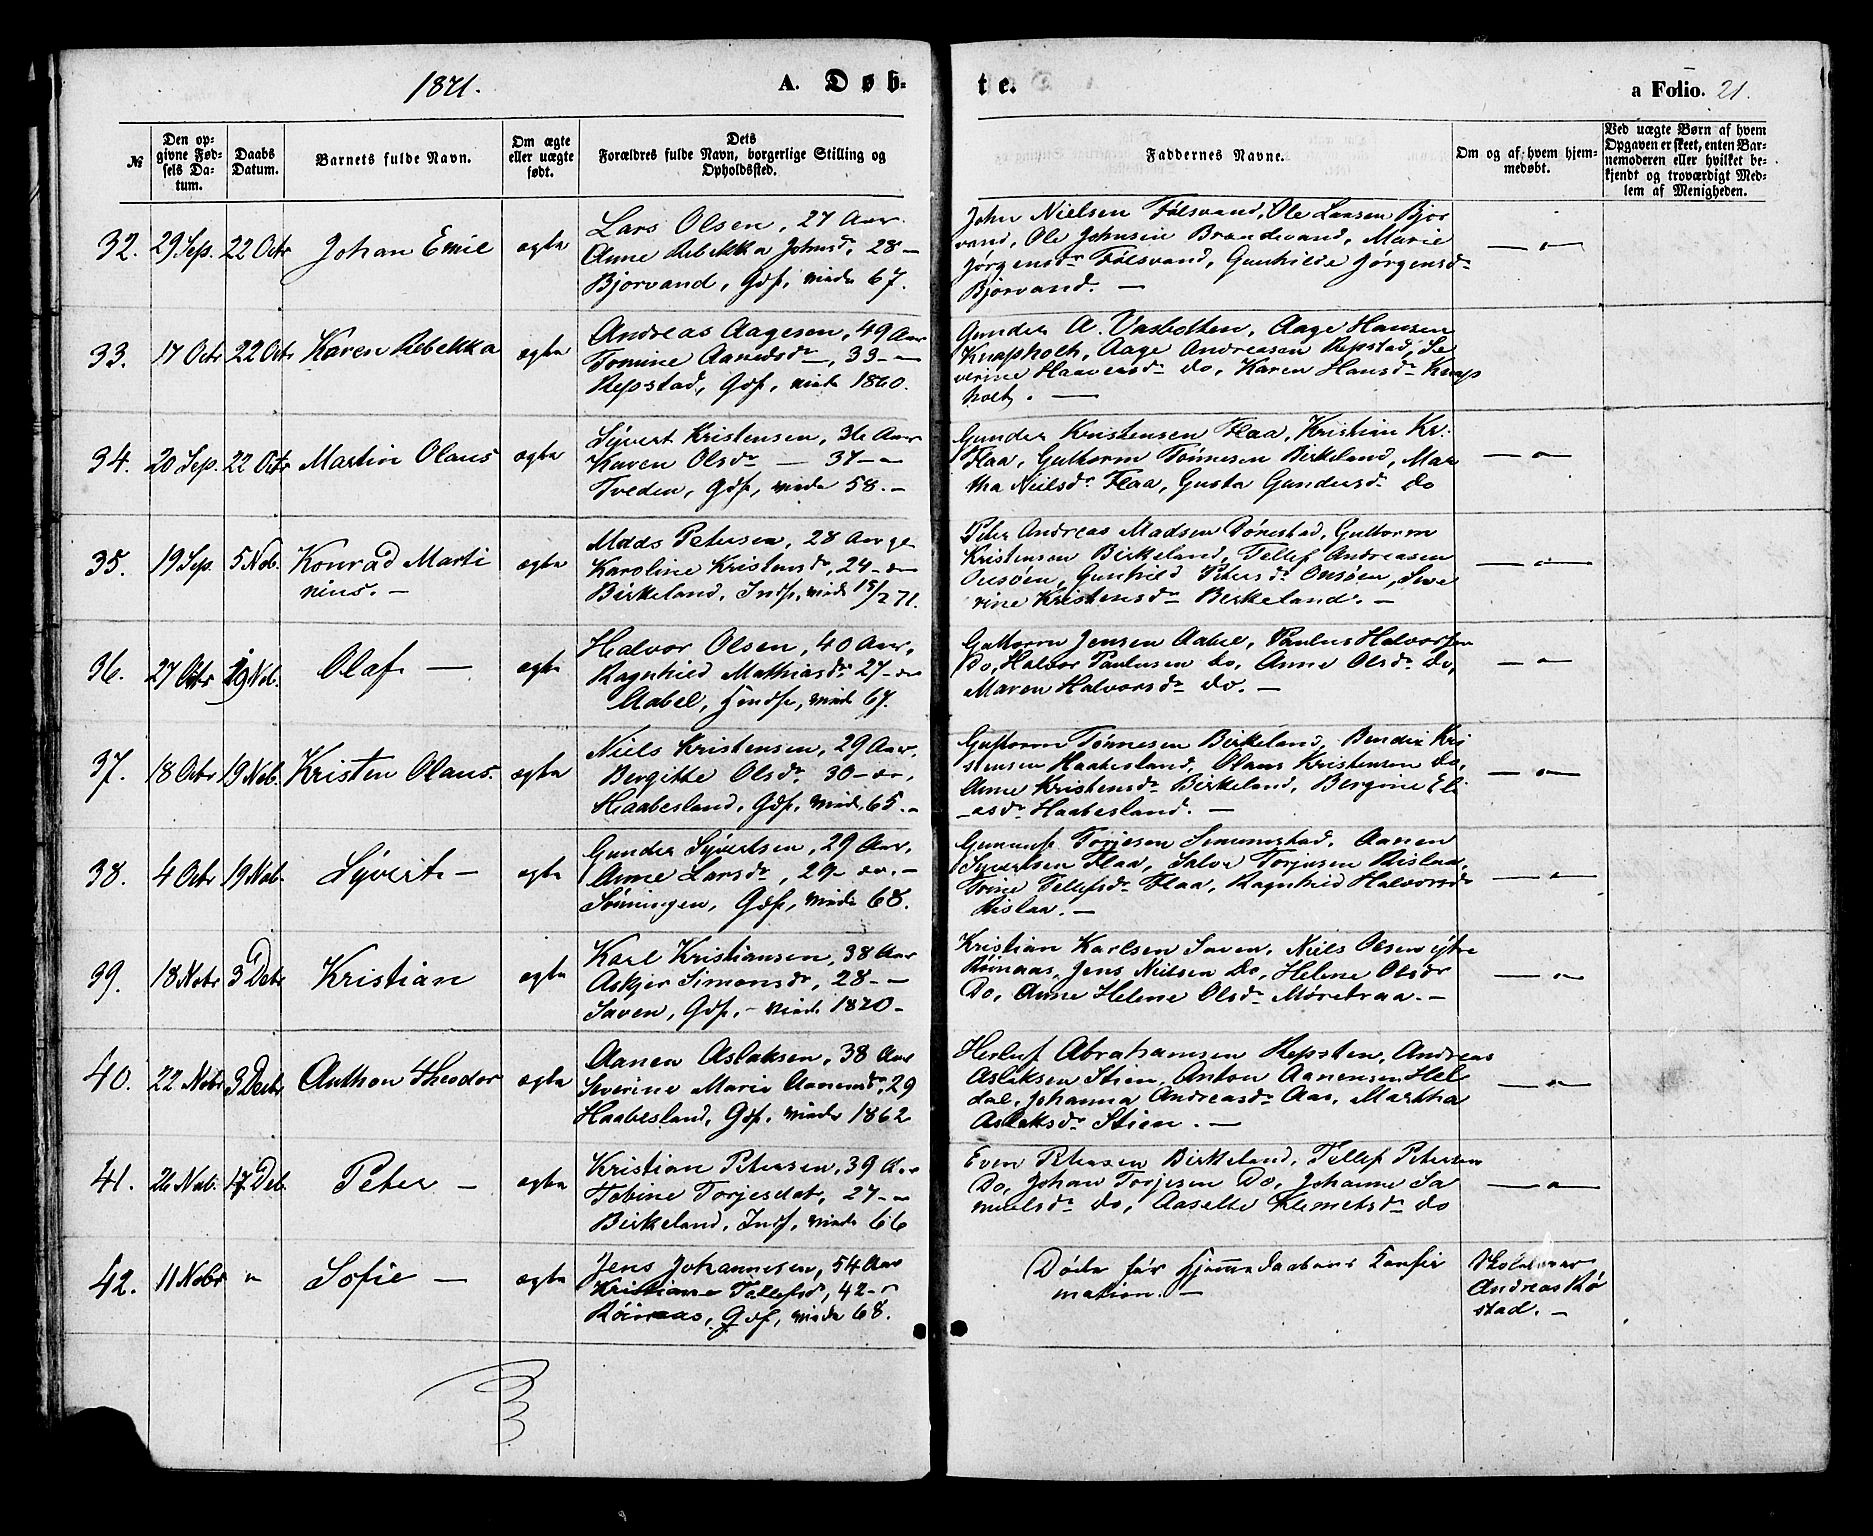 1871. A. Døb-
te. a Folio. 21.
№
Den op-
givne Fød-
sels Da-
tum.
Daabs
Datum.
Barnets fulde Navn.
Om ægte
eller uægte
født.
Dets
Forældres fulde Navn, borgerlige Stilling og
Opholdssted.
Faddernes Navne.
Om og af hvem hjem-
medøbt.
Ved uægte Børn af hvem
Opgaven er skeet, enten Bar-
nemoderen eller hvilket be-
kjendt og troværdigt Med-
lem af Menigheden.
32. 29 Sep. 22 Octr Johan Emil ægte
Lars Olsen, 27 Aar
Anne Rebekka Johnsdr, 28 —
Bjorvand, Gdf, viede 67.
John Nielsen Fölsvand, Ole Larsen Bjor
vand, Ole Johnsen Brandevand, Marie
Jørgensdr Fölsvand, Gunhilde Jørgensdr
Bjorvand. —
— " —
33. 17 Octr 22 Octr Karen Rebekka ægte
Andreas Aagesen, 49 Aar
Tomine Aanensdr —, 33 — "
Repstad, Gdf, viede 1860.
Gunder A. Vasbotten, Aage Hansen
Knapholt, Aage Andreasen Repstad, Se
verine Haavorsdr do, Karen Hansdr Knap
holt. —
34. 20 Sep. 22 Octr Martin Olaus ægte
Syvert Kristensen, 36 Aar
Karen Olsdr — 37 — "
Tveden, Gdf, viede 58. —
Gunder Kristensen Flaa, Kristian Kr.
Flaa, Guttorm Tönnesen Birkeland, Mar
tha Nielsdr Flaa, Gusta Gundersdr do
— " —
35. 19 Sep 5 Nob. Konrad Marti
nius. — ægte
Mads Petersen, 28 Aar
Karoline Kristensdr, 24 — "
Birkeland, Indf, viede 15/2 71.
Peter Andreas Madsen Dönestad, Guttorm
Kristensen Birkeland, Tellef Andreasen
Onsöen, Gunhild Petersdr Onsöen, Seve
rine Kristensdr Birkeland. —
— " —
36. 27 Octr 19 Nob. Olaf — ægte
Halvor Olsen, 40 Aar,
Ragnhild Mathiasdr 27 — "
Aabel, Indf, viede 67.
Guttorm Jensen Aabel, Paulus Halvorsen
Do, Halvor Paulusen do, Anne Olsdr do,
Maren Halvorsdr do. —
— " —
37. 18 Octr 19 Nob. Kristen Olaus. ægte
Niels Kristensen, 29 Aar.
Bergitte Olsdr 30 — ",
Haabesland, Gdf, viede 65. —
Guttorm Tönnesen Birkeland, Bendix Kri
stensen Haabesland, Olaus Kristensen do,
Anne Kristensdr Birkeland, Bergine Eli
asdr Haabesland. —
— " —
38. 4 Octr 19 Nob. Syvert — ægte
Gunder Syvertsen, 29 Aar,
Anne Larsdr, 29 — ". —
Sönningen, Gdf, viede 68.
Gunuf Torjesen Simonstad, Aanen
Syvertsen Flaa, Salve Torjusen Rislaa,
Trine Tellefsdr Flaa, Ragnhild Halvorsdr
Rislaa. —
— " —
39. 18 Nobr 3 Debr Kristian ægte
Karl Kristiansen, 38 Aar
Askjer Simonsdr, 28 — —
Saven, Gdf. — viede 1870 —
Kristian Karlsen Saven, Niels Olsen ytre
Röinaas, Jens Nielsen Do, Helene Olsdr
Do, Anne Helene Olsdr Möretraa. —
— " —
40. 22 Nobr 3 Decbr Anthon Theodor ægte
Aanen Aslaksen, 38 Aar
Severine Marie Aanensdr, 29
Haabesland, Gdf. viede 1862
Herluf Abrahamsen Repsten, Andreas
Aslaksen Stien, Anton Aanensen Hel
dal, Johanna Andreasdr Aas, Martha
Aslaksdr Stien. —
— " —
41. 26 Nob. 17 Deb. Peter — ægte
Kristian Petersen, 39 Aar
Tobine Torjesdat, 27 — "
Birkeland, Indf, viede 66
Even Petersen Birkeland, Tellef Petersen
Do, Johan Torjesen Do, Johanne Sa
muelsdr do, Aaselte Klemetsdr do
— " —
42. 11 Nobr " Sofie — ægte
Jens Johannesen, 54 Aar
Kristiane Tellefsdr, 42 — "
Röinaas, Gdf, viede 68.
Döde för Hjemmedaabens Konfir
mation. —
Andreas Rö
stad. —